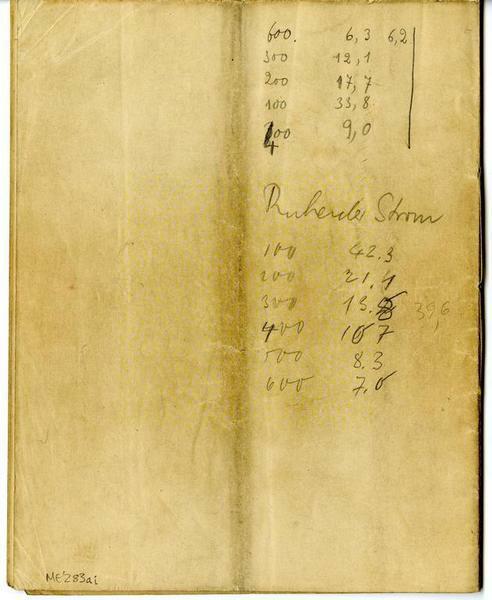 600. 6,3 6,2
300 12,1
200 17,7
100 33,8
400 9,0
Ruhender Strom
100 42.3
200 21,4
300 13.8 39,6
400 10 7
500 8.3
600 7,0
ME283ai